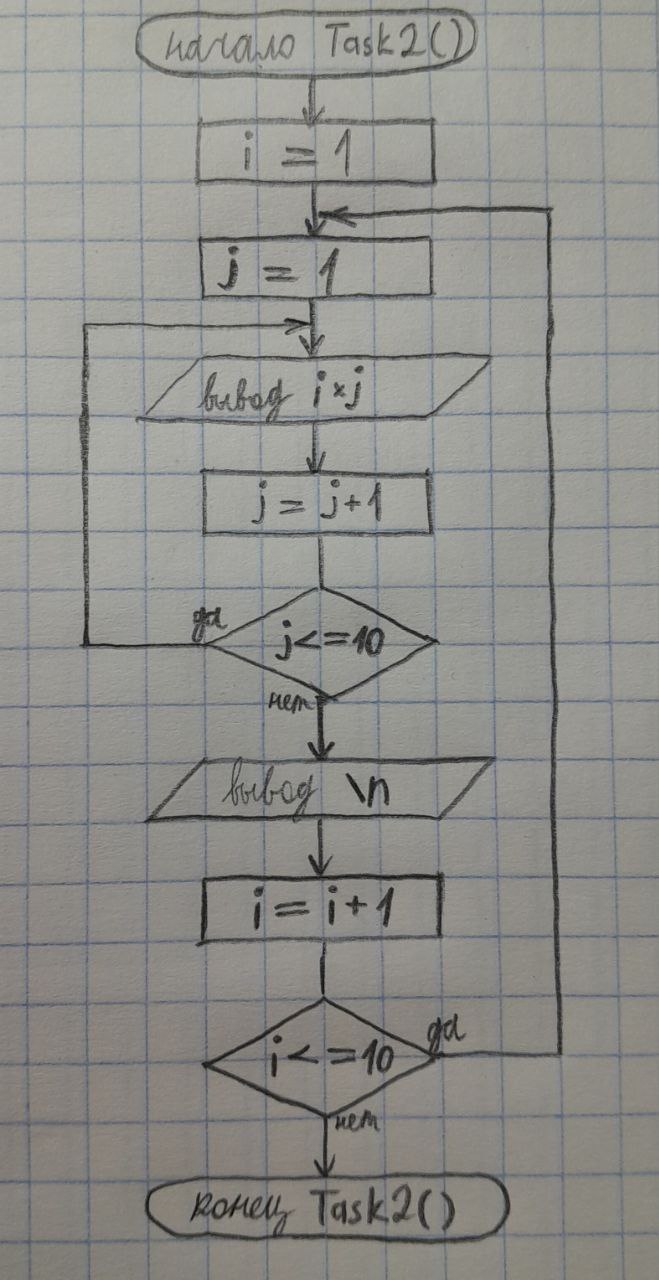 начало Task2()
i = 1
j = 1
вывод i×j
j = j+1
да
j<=10
нет
вывод \n
i = i+1
да
i<=10
нет
конец Task2()